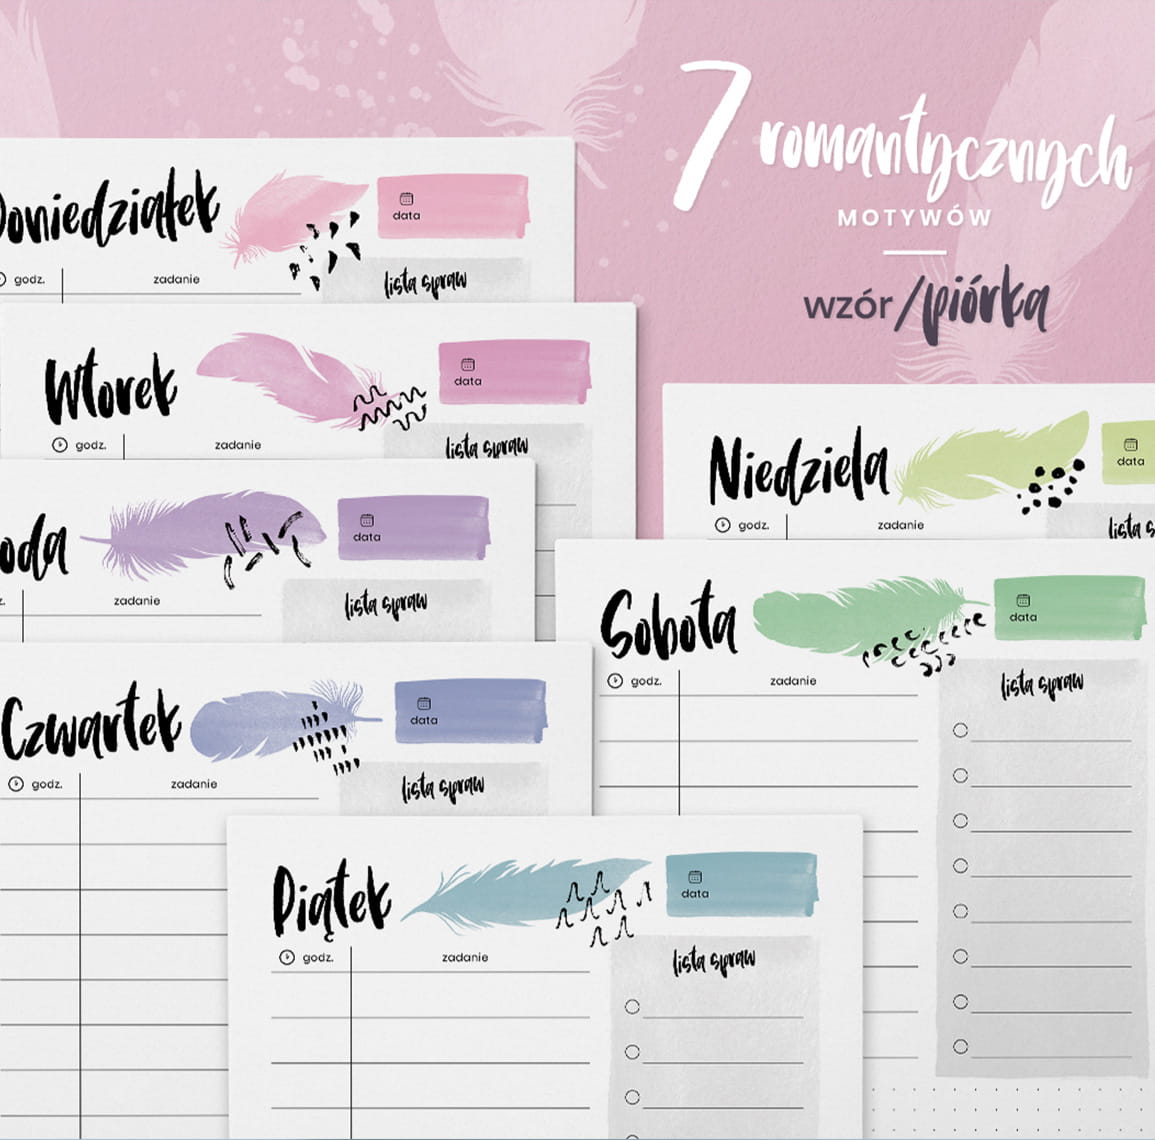 7 romantycznych
MOTYWÓW
wzór/piórka
Poniedziałek
data
godz.
zadanie
lista spraw
Wtorek
data
godz.
zadanie
lista spraw
oda
data
z.
zadanie
lista spraw
Czwartek
data
godz.
zadanie
lista spraw
Piątek
data
godz.
zadanie
lista spraw
Niedziela
data
godz.
zadanie
lista s
Sobota
data
godz.
zadanie
lista spraw